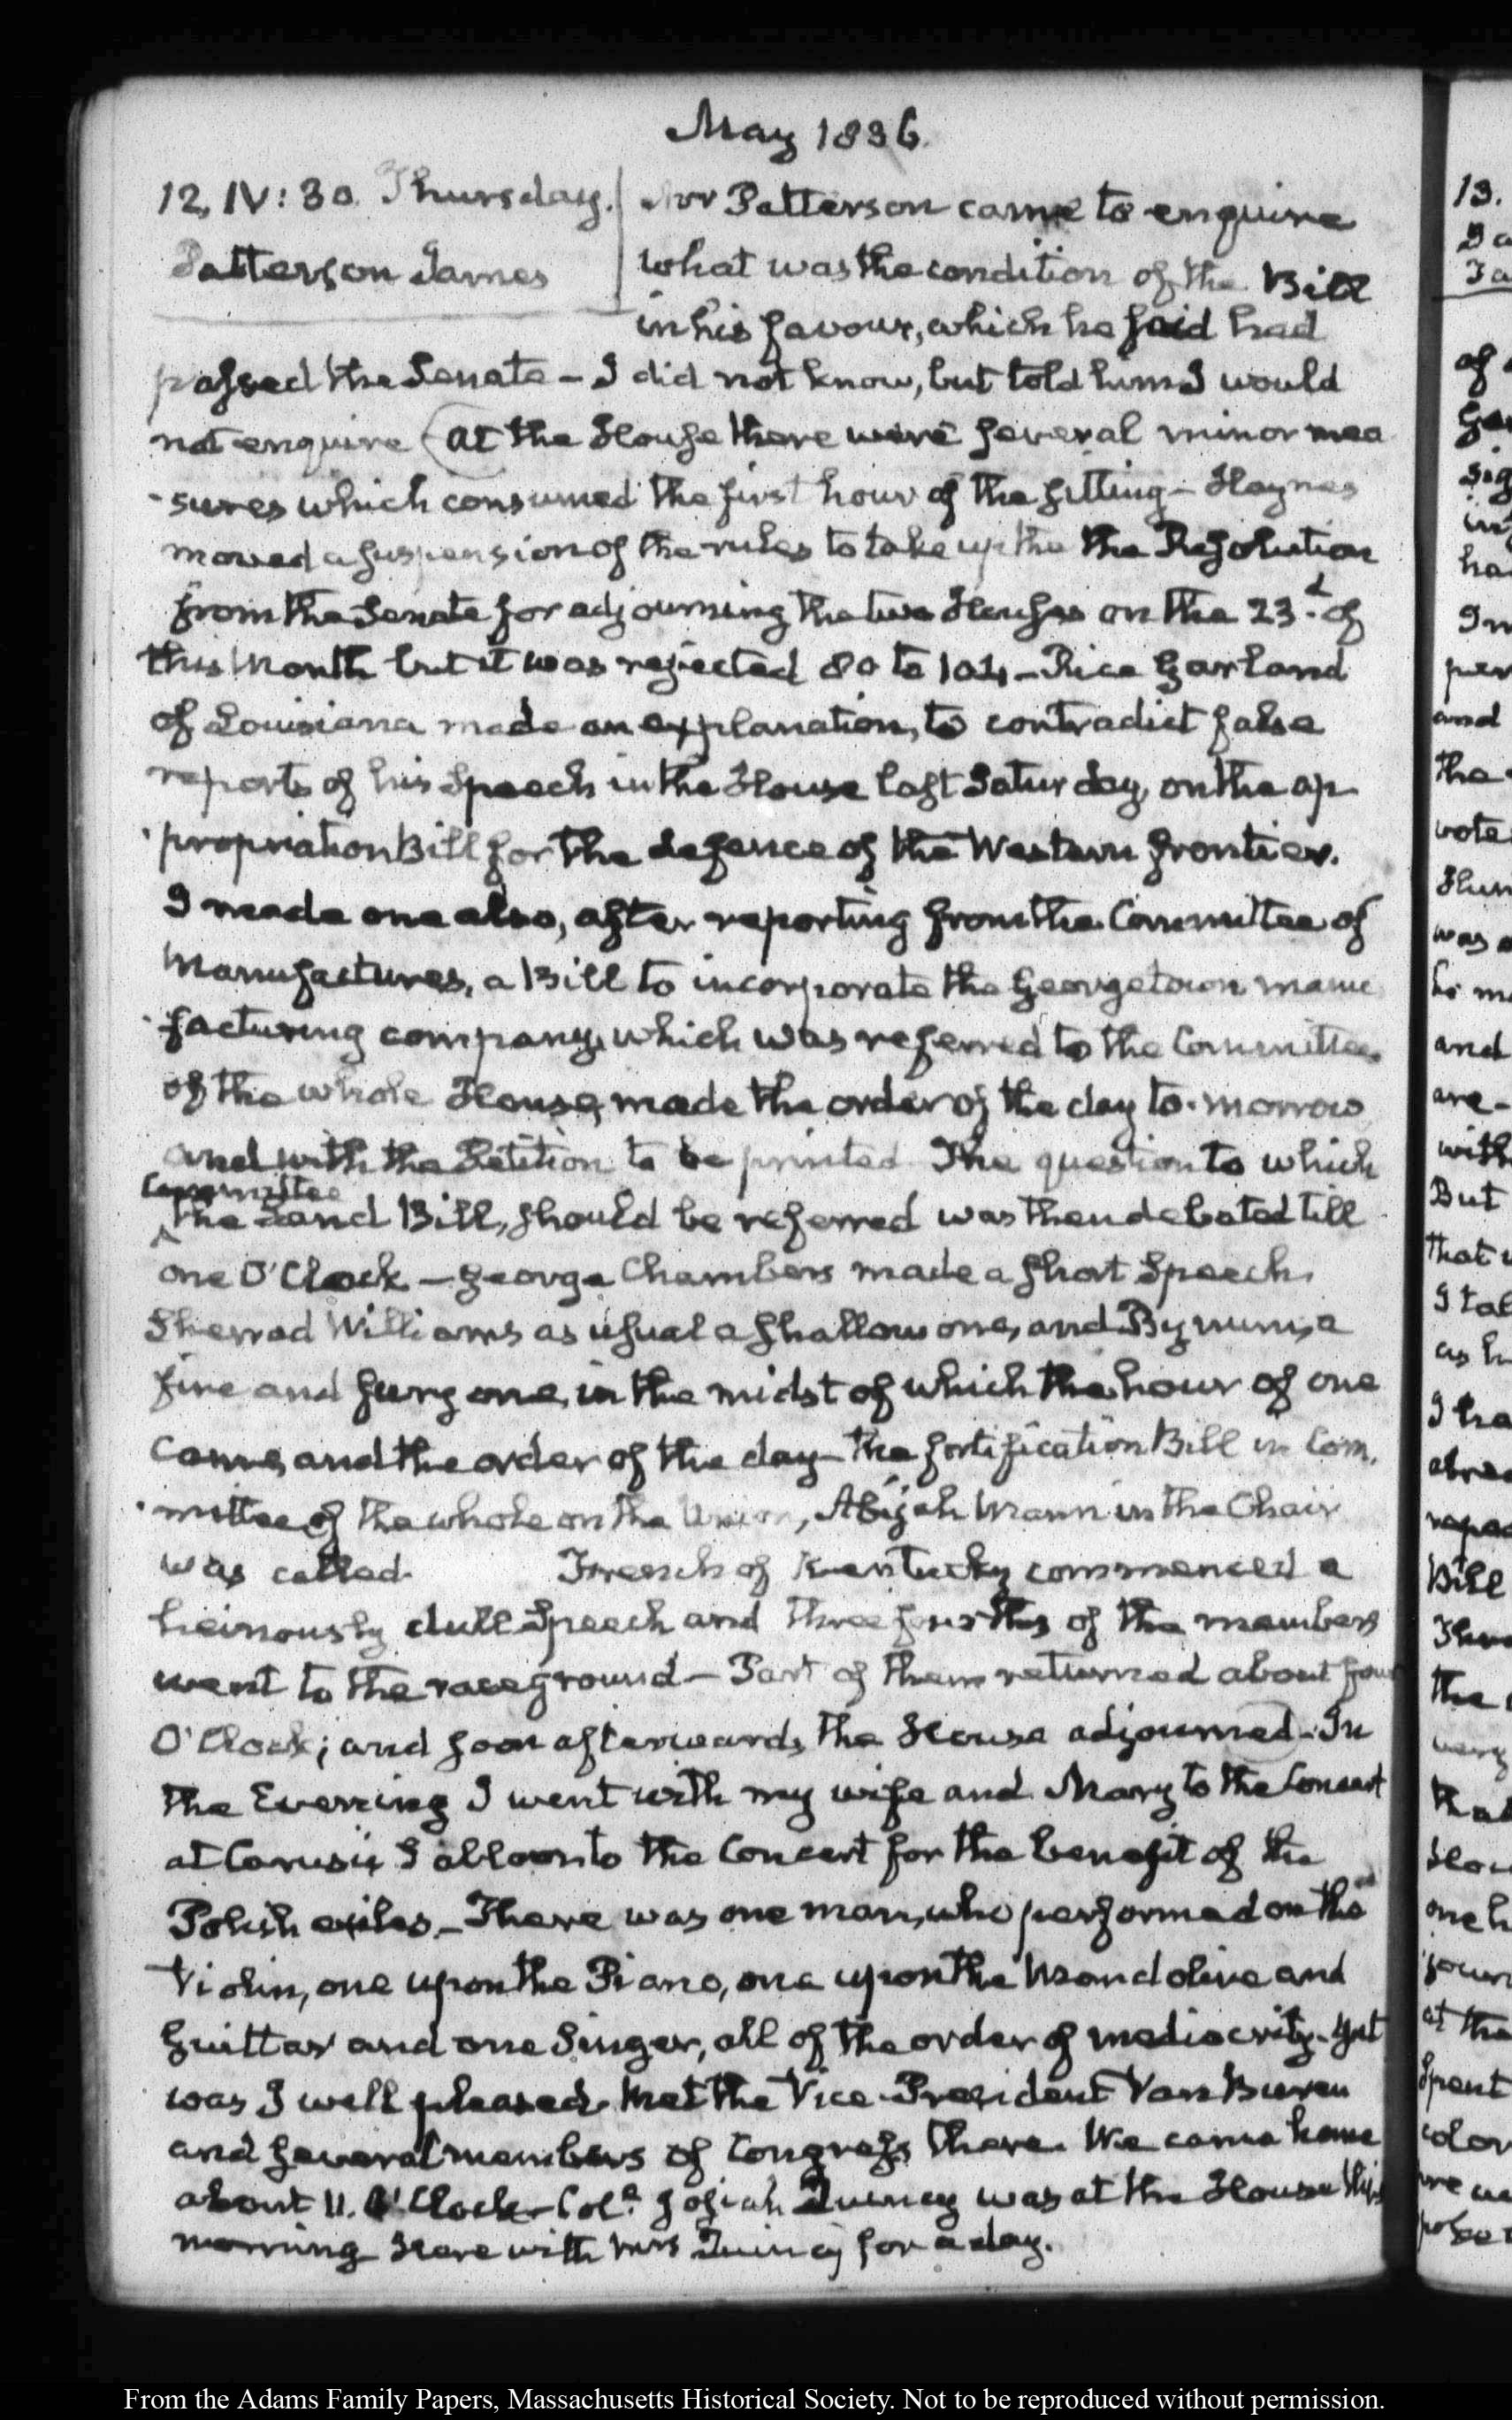 May 1836.
12. IV:30. Thursday.
Patterson James
Mr Patterson came to enquire
what was the condition of the Bill
in his favour, which he said had
passed the Senate — I did not know, but told him I would
not enquire (at the House there were several minor mea
-sures which consumed the first hour of the sitting — Haynes
moved a suspension of the rules to take up the the Resolution
from the Senate for adjourning the two Houses on the 23.d of
this Month but it was rejected 80 to 104 — Rice Garland
of Louisiana made an explanation, to contradict false
reports of his Speech in the House last Saturday, on the ap
-propriation Bill for the defence of the Western frontier.
I made one also, after reporting from the Committee of
Manufactures, a Bill to incorporate the Georgetown manu
-facturing company, which was referred to the Committee
of the whole House, made the order of the day to-morrow
and with the Petition to be printed. The question to which
Committee
^the Land Bill, should be referred was then debated till
one O'Clock — George Chambers made a short Speech,
Sherrod Williams as usual a shallow one, and Bynum, a
fire and fury one, in the midst of which the hour of one
came, and the order of the day — the fortification Bill in Com.
-mittee of the whole on the Union, Abijah Mann in the Chair
was called. French of Kentucky commenced a
heinously dull Speech and three fourths of the members
went to the race ground — Part of them returned about four
O'Clock; and soon afterwards the House adjourned — In
the Evening I went with my wife and Mary to the Concert
at Carusi's Saloon to the Concert for the benefit of the
Polish exiles. — There was one man, who performed on the
Violin, one upon the Piano, one upon the Mandoline and
Guittar and one Singer, all of the order of mediocrity — Yet
was I well pleased. Met the Vice-President Van Buren
and several members of Congress there. We came home
about 11. O'Clock — Col. Josiah Quincy was at the House this
morning Here with Mrs Quincy for a day.
13.
of
and
the
vote
was
and
are-
with
But
that
as h
Bill
the
at the
Spent
From the Adams Family Papers, Massachusetts Historical Society. Not to be reproduced without permission.